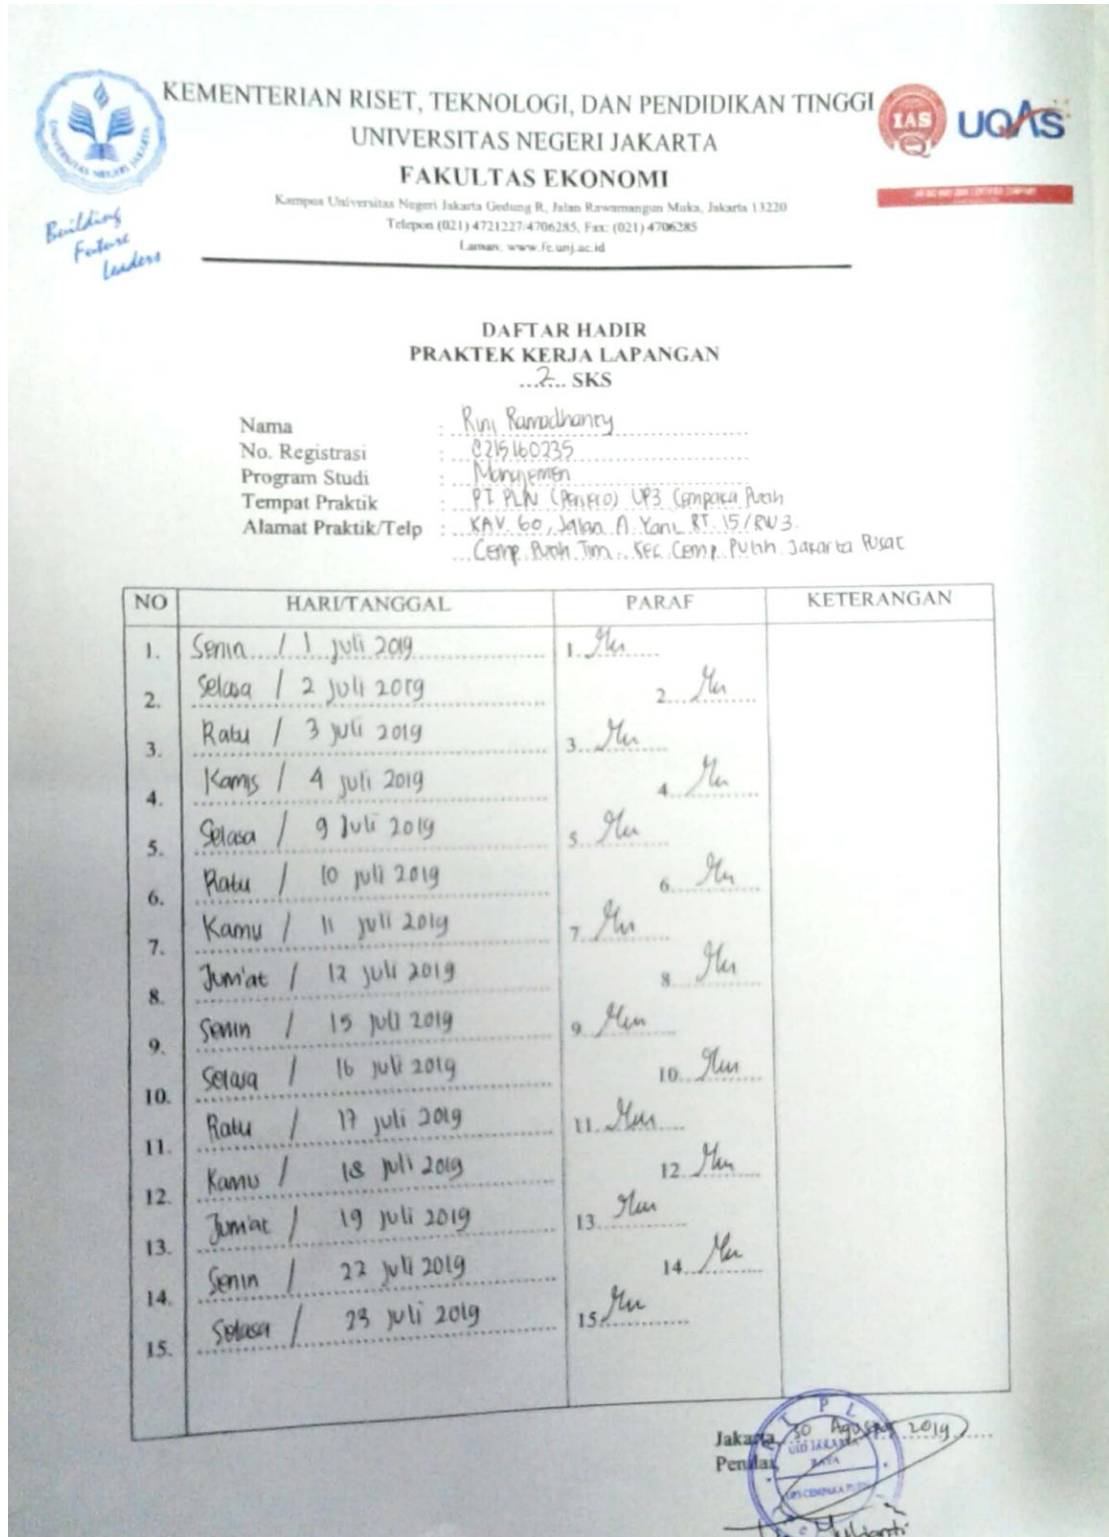 KEMENTERIAN RISET, TEKNOLOGI, DAN PENDIDIKAN TINGGI
UNIVERSITAS NEGERI JAKARTA
FAKULTAS EKONOMI
Kampus Universitas Negeri Jakarta Gedung R, Jalan Rawamangun Muka, Jakarta 13220
Telepon (021) 4721227/4706285, Fax: (021) 4706285
Laman: www.fe.unj.ac.id
UNIVERSITAS NEGERI JAKARTA
Building
Future
Leaders
IAS
UQAS
DAFTAR HADIR
PRAKTEK KERJA LAPANGAN
...2... SKS
Nama : Rini Ramadhanty
No. Registrasi : 8215160235
Program Studi : Manajemen
Tempat Praktik : PT. PLN (Persero) UP3 Cempaka Putih
Alamat Praktik/Telp : KAV. 60, Jalan A. Yani, RT. 15/RW 3.
Cemp. Putih Tim., Kec. Cemp. Putih Jakarta Pusat
NO HARI/TANGGAL PARAF KETERANGAN
1. Senin / 1 Juli 2019 1.
2. Selasa / 2 Juli 2019 2.
3. Rabu / 3 Juli 2019 3.
4. Kamis / 4 Juli 2019 4.
5. Selasa / 9 Juli 2019 5.
6. Rabu / 10 Juli 2019 6.
7. Kamis / 11 Juli 2019 7.
8. Jum'at / 12 Juli 2019 8.
9. Senin / 15 Juli 2019 9.
10. Selasa / 16 Juli 2019 10.
11. Rabu / 17 Juli 2019 11.
12. Kamis / 18 Juli 2019 12.
13. Jum'at / 19 Juli 2019 13.
14. Senin / 22 Juli 2019 14.
15. Selasa / 23 Juli 2019 15.
Jakarta, 30 Agustus 2019
Penilai,
UID JAKARTA
RAYA
UP3 CEMPAKA PUTIH